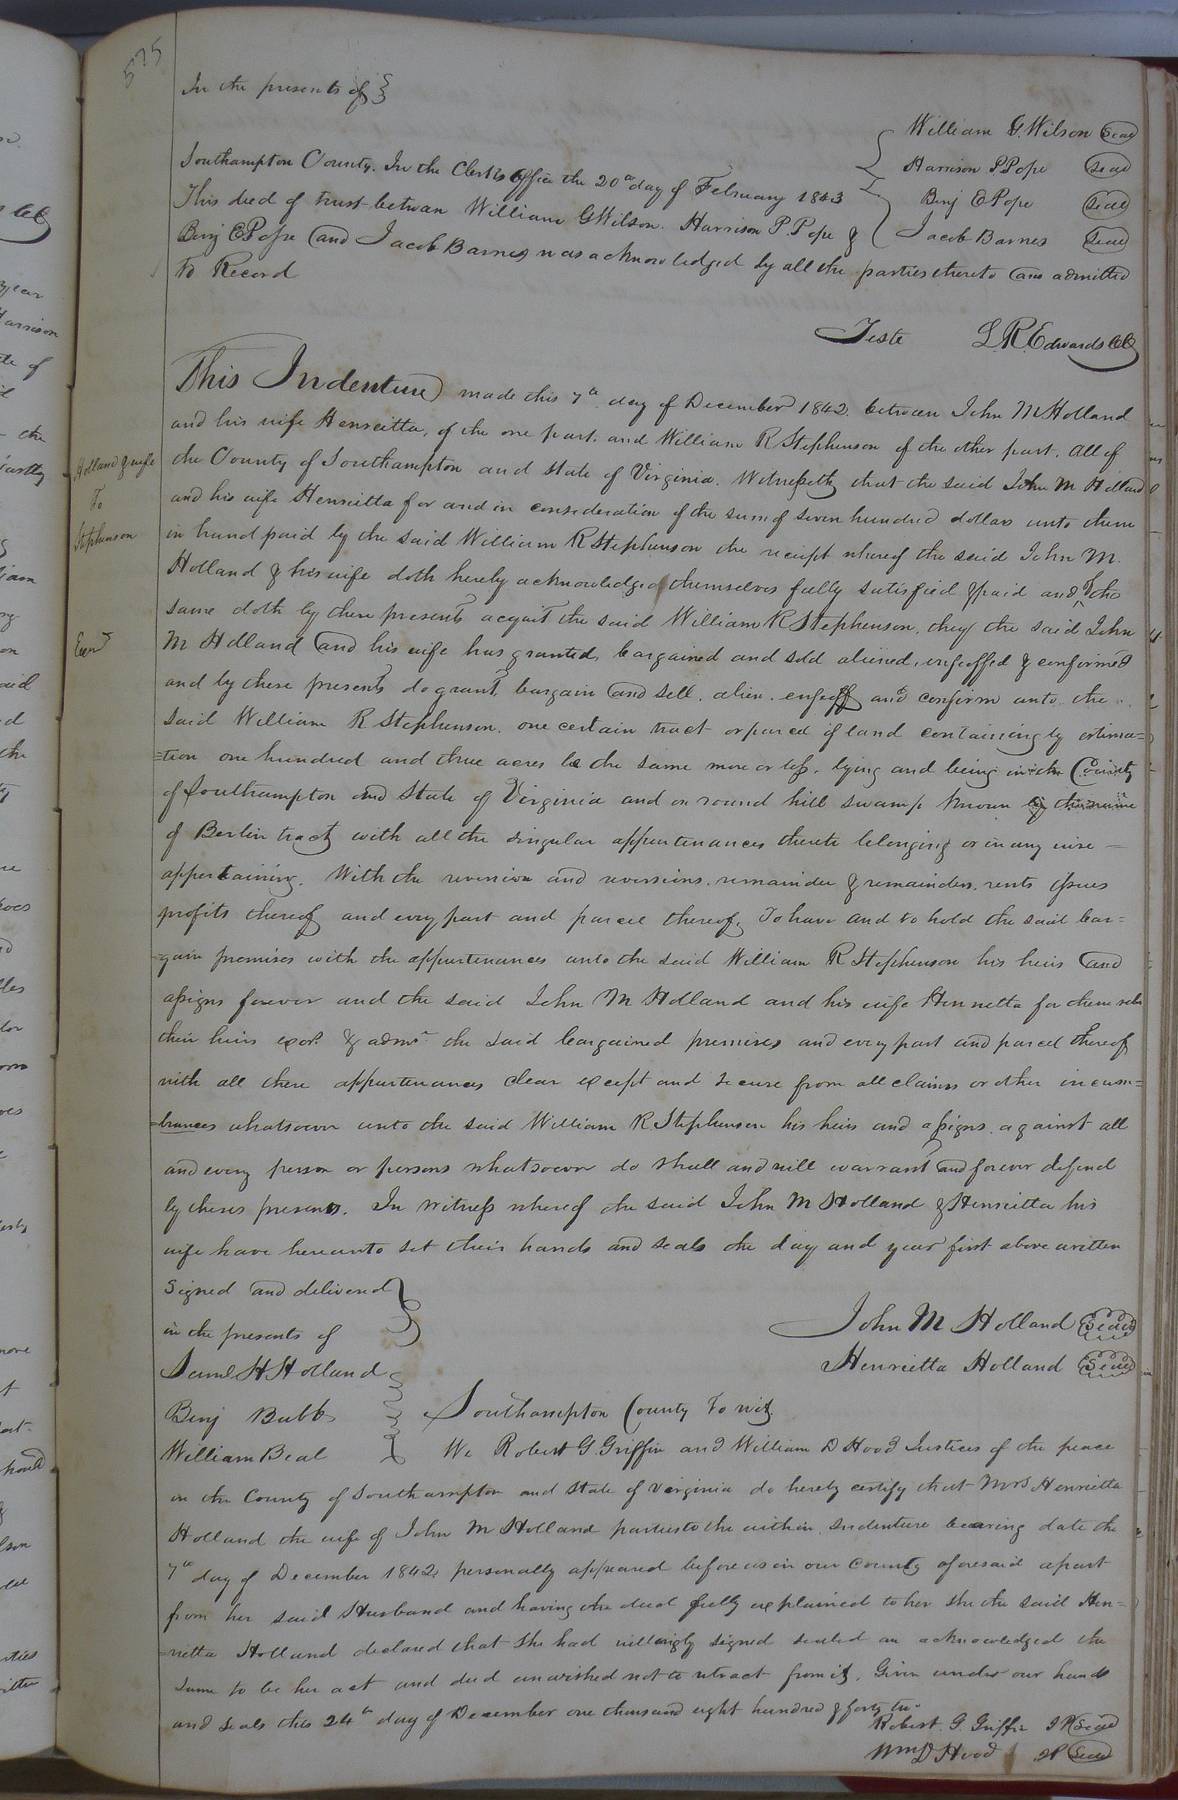 575
In the presents of
William G. Wilson Seal
Harrison P. Pope Seal
Benj E Pope Seal
Jacob Barnes Seal
Southampton County. In the Clerks Office the 20th day of February 1843
This died of trust between William G Wilson. Harrison P. Pope &
Benj E Pope and Jacob Barnes was acknowledged by all the parties thereto and admitted
to Record
Teste L R. Edwards CC
This Indenture made this 7th day of December 1842. between John M Holland
and his wife Henrietta, of the one part. and William R Stephenson of the other part. all of
Holland & wife
To
Stephenson
the County of Southampton and State of Virginia. Witnesseth, that the said John M Holland
and his wife Henrietta for and in consideration of the sum of seven hundred dollars unto them
in hand paid by the said William R Stephenson the receipt whereof the said John M.
Holland & his wife doth hereby acknowledged themselves fully satisfied & paid and of the
same doth by these presents acquit the said William R Stephenson, they the said John
M Holland and his wife has granted, bargained and sold aliened, enfeoffed & confirmed
and by these presents do grant, bargain and sell. alien. enfeoff and confirm unto the
said William R Stephenson. one certain tract or parcel of land containing by estima=
=tion one hundred and three acres be the same more or less, lying and being in the County
of Southampton and State of Virginia and on round hill swamp known by the name
of Berlin tract with all the singular appurtenances thereto belonging or in any wise
appertaining. With the revension and reversions, remainder & remainders, rents issues
profits thereof and evry part and parcel thereof. To have and to hold the said bar=
-gain premises with the appurtenances unto the said William R Stephenson his heirs and
assigns forever and the said John M Holland and his wife Henrietta for themselves
their heirs exor. & admr the said bargained premises and every part and parcel thereof
with all there appurtenances clear except and secure from all claims or other incum=
=brances whatsoever unto the said William R Stephenson his heirs and assigns. against all
and every person or persons whatsoever do shall and will warrant and forever defend
by theses presents. In witness whereof the said John M Holland & Henrietta his
wife have hereunto set their hands and seals the day and year first above written
Signed and delivered
in the presents of
John M Holland Seal
Henrietta Holland Seal
Saml H Holland
Benj Bubb
William Beal
Southampton County To wit.
We Robert G. Griffin and William D Hood Justices of the peace
in the County of Southampton and State of Virginia do hereby certify that Mrs Henrietta
Holland the wife of John M Holland parties to the within Indenture bearing date the
7th day of December 1842, personally appeared before us in our County aforesaid apart
from her said Husband and having the deed fully explained to her she the said Hen=
=rietta Holland declared that she had willingly signed sealed an acknowledged the
same to be her act and deed and wished not to retract from it. Given under our hands
and seals this 24th day of December one thousand eight hundred & forty two
Robert. G. Griffin JP Seal
Wm D Hood JP Seal